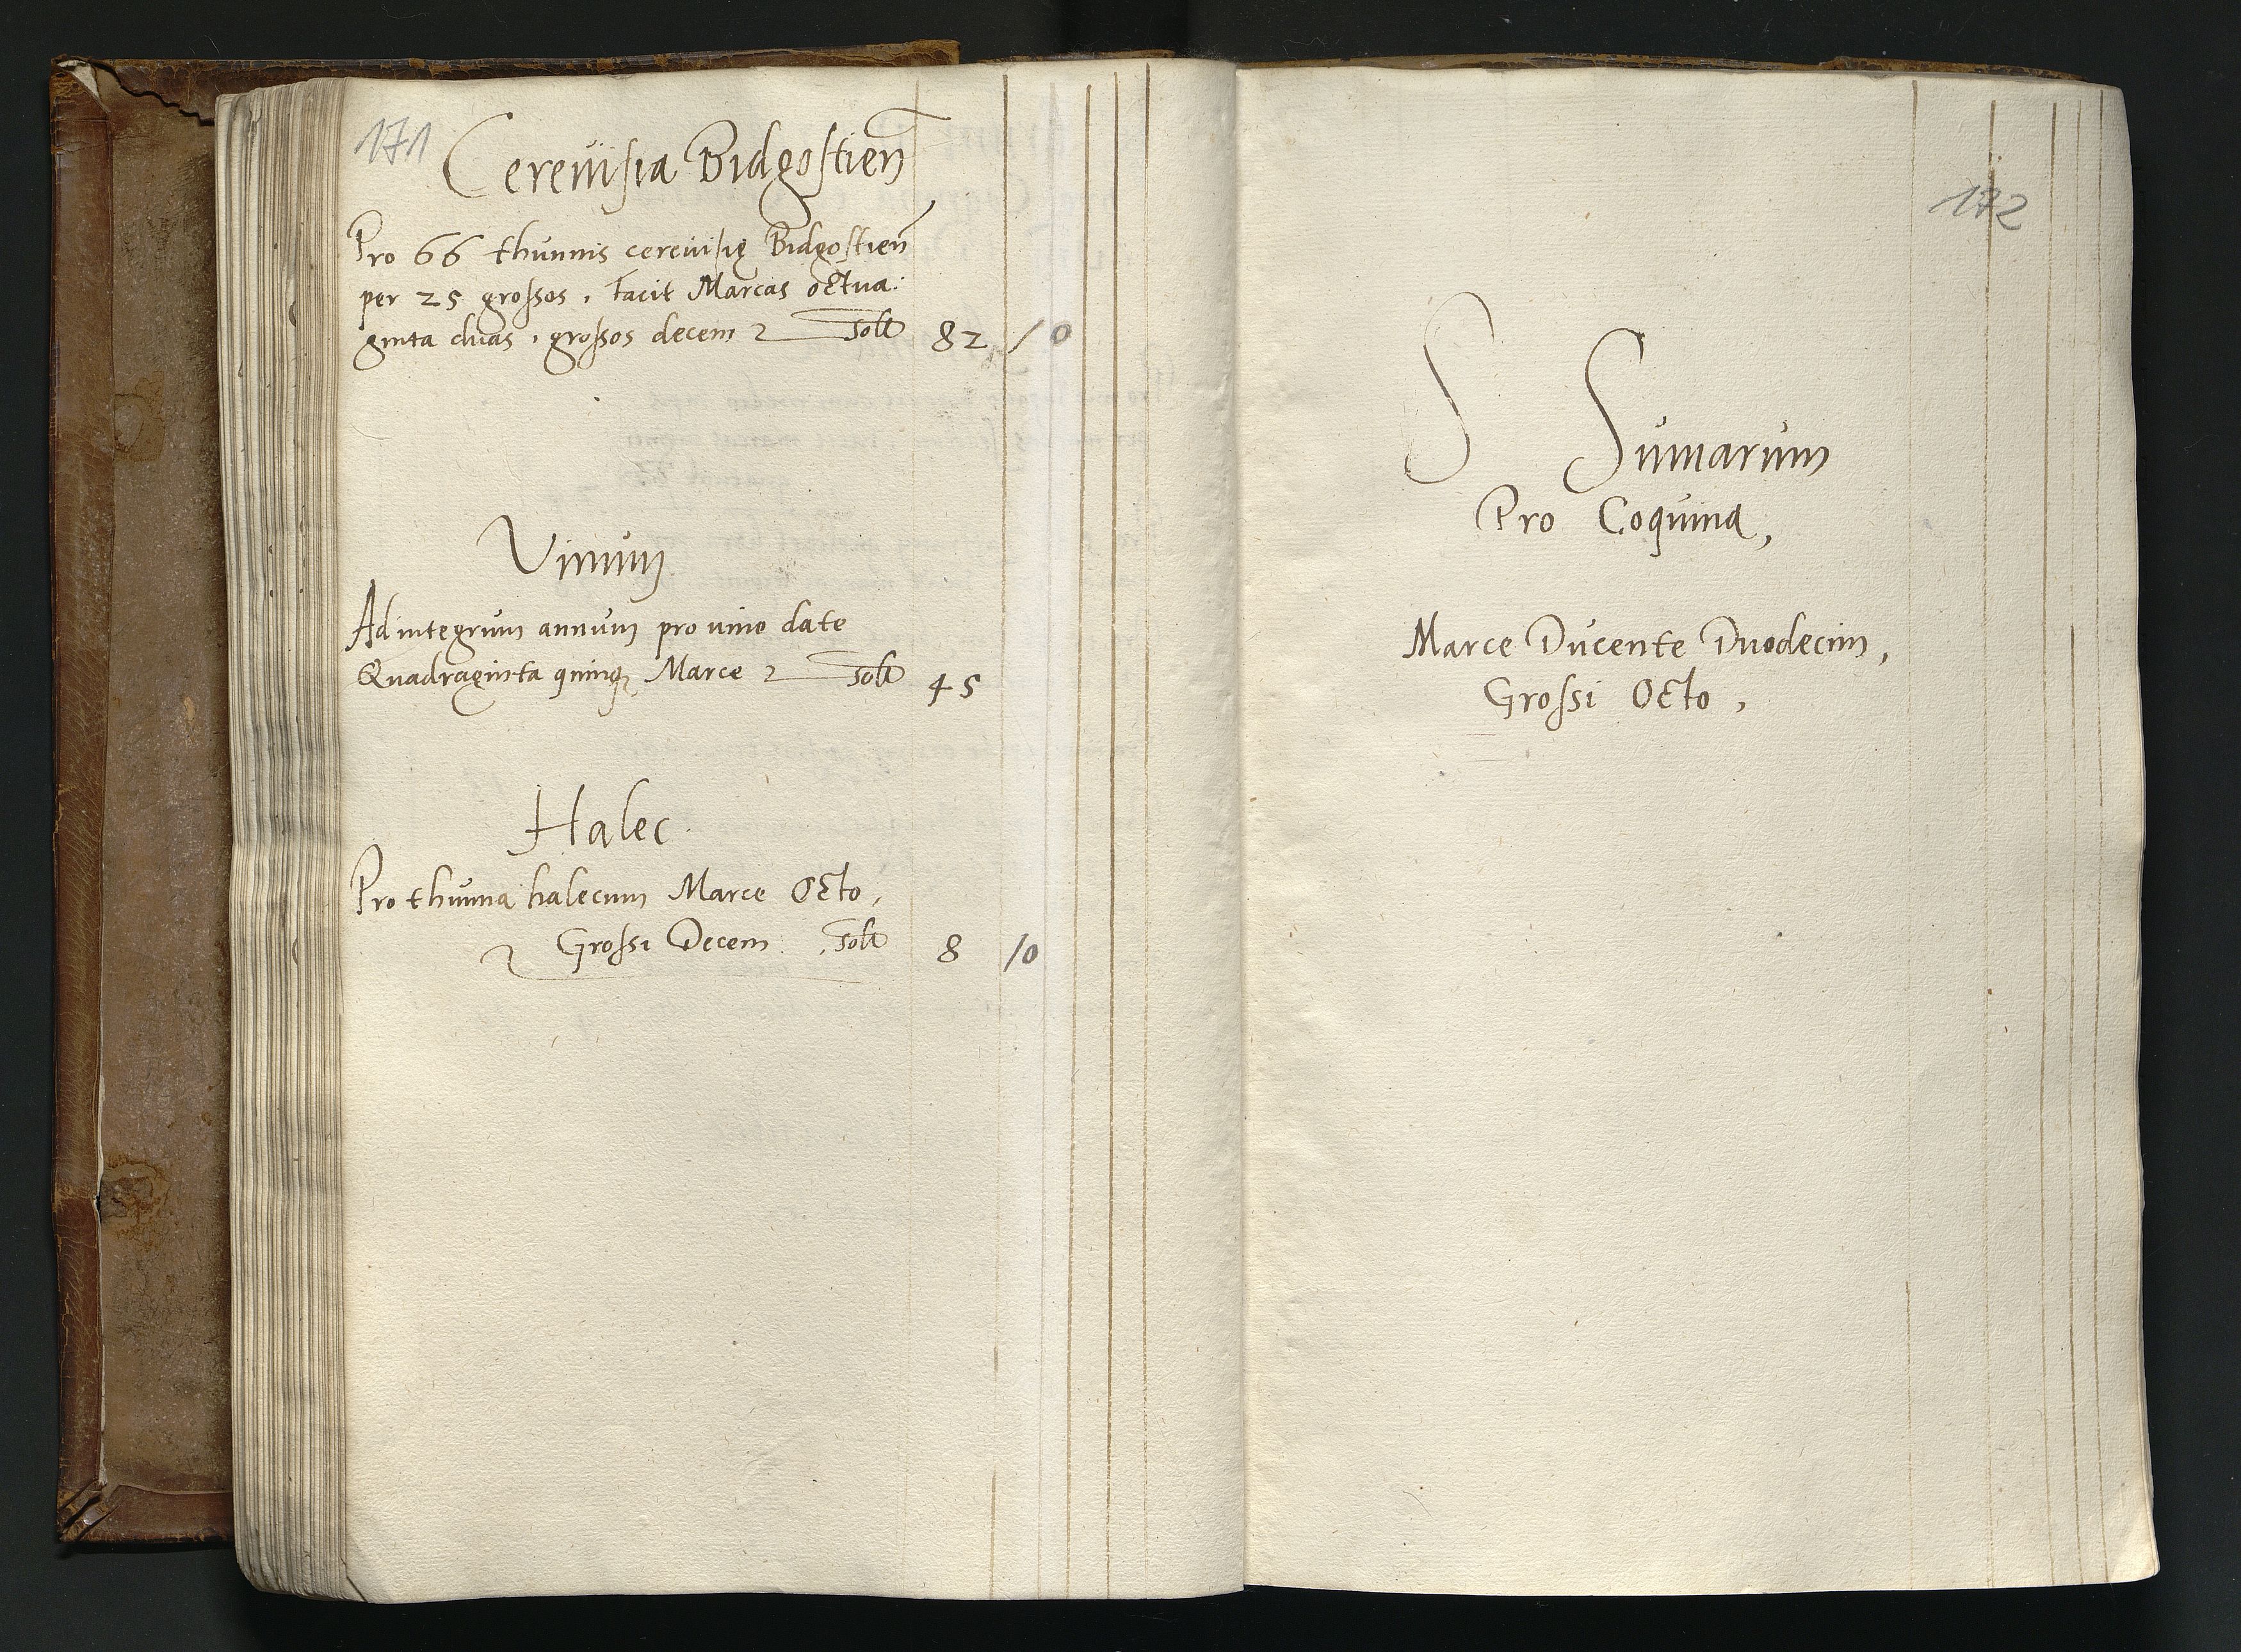 171
Cereuisia Bidgostien̄
Pro 66 thunnis cereuisię Bidgostien̄
per 25 grossos, facit Marcas octua:
ginta duas, grossos decem solt 82 10
Vinum
Ad integrum annum pro uino date
Quadraginta quinqꝫ Marce solt 45
Halec.
Pro thunna halecum Marce Octo,
Grossi Decem. solt 8 10
172
S Sumarum
Pro Coquina,
Marce Ducente Duodecim,
Grossi Octo,